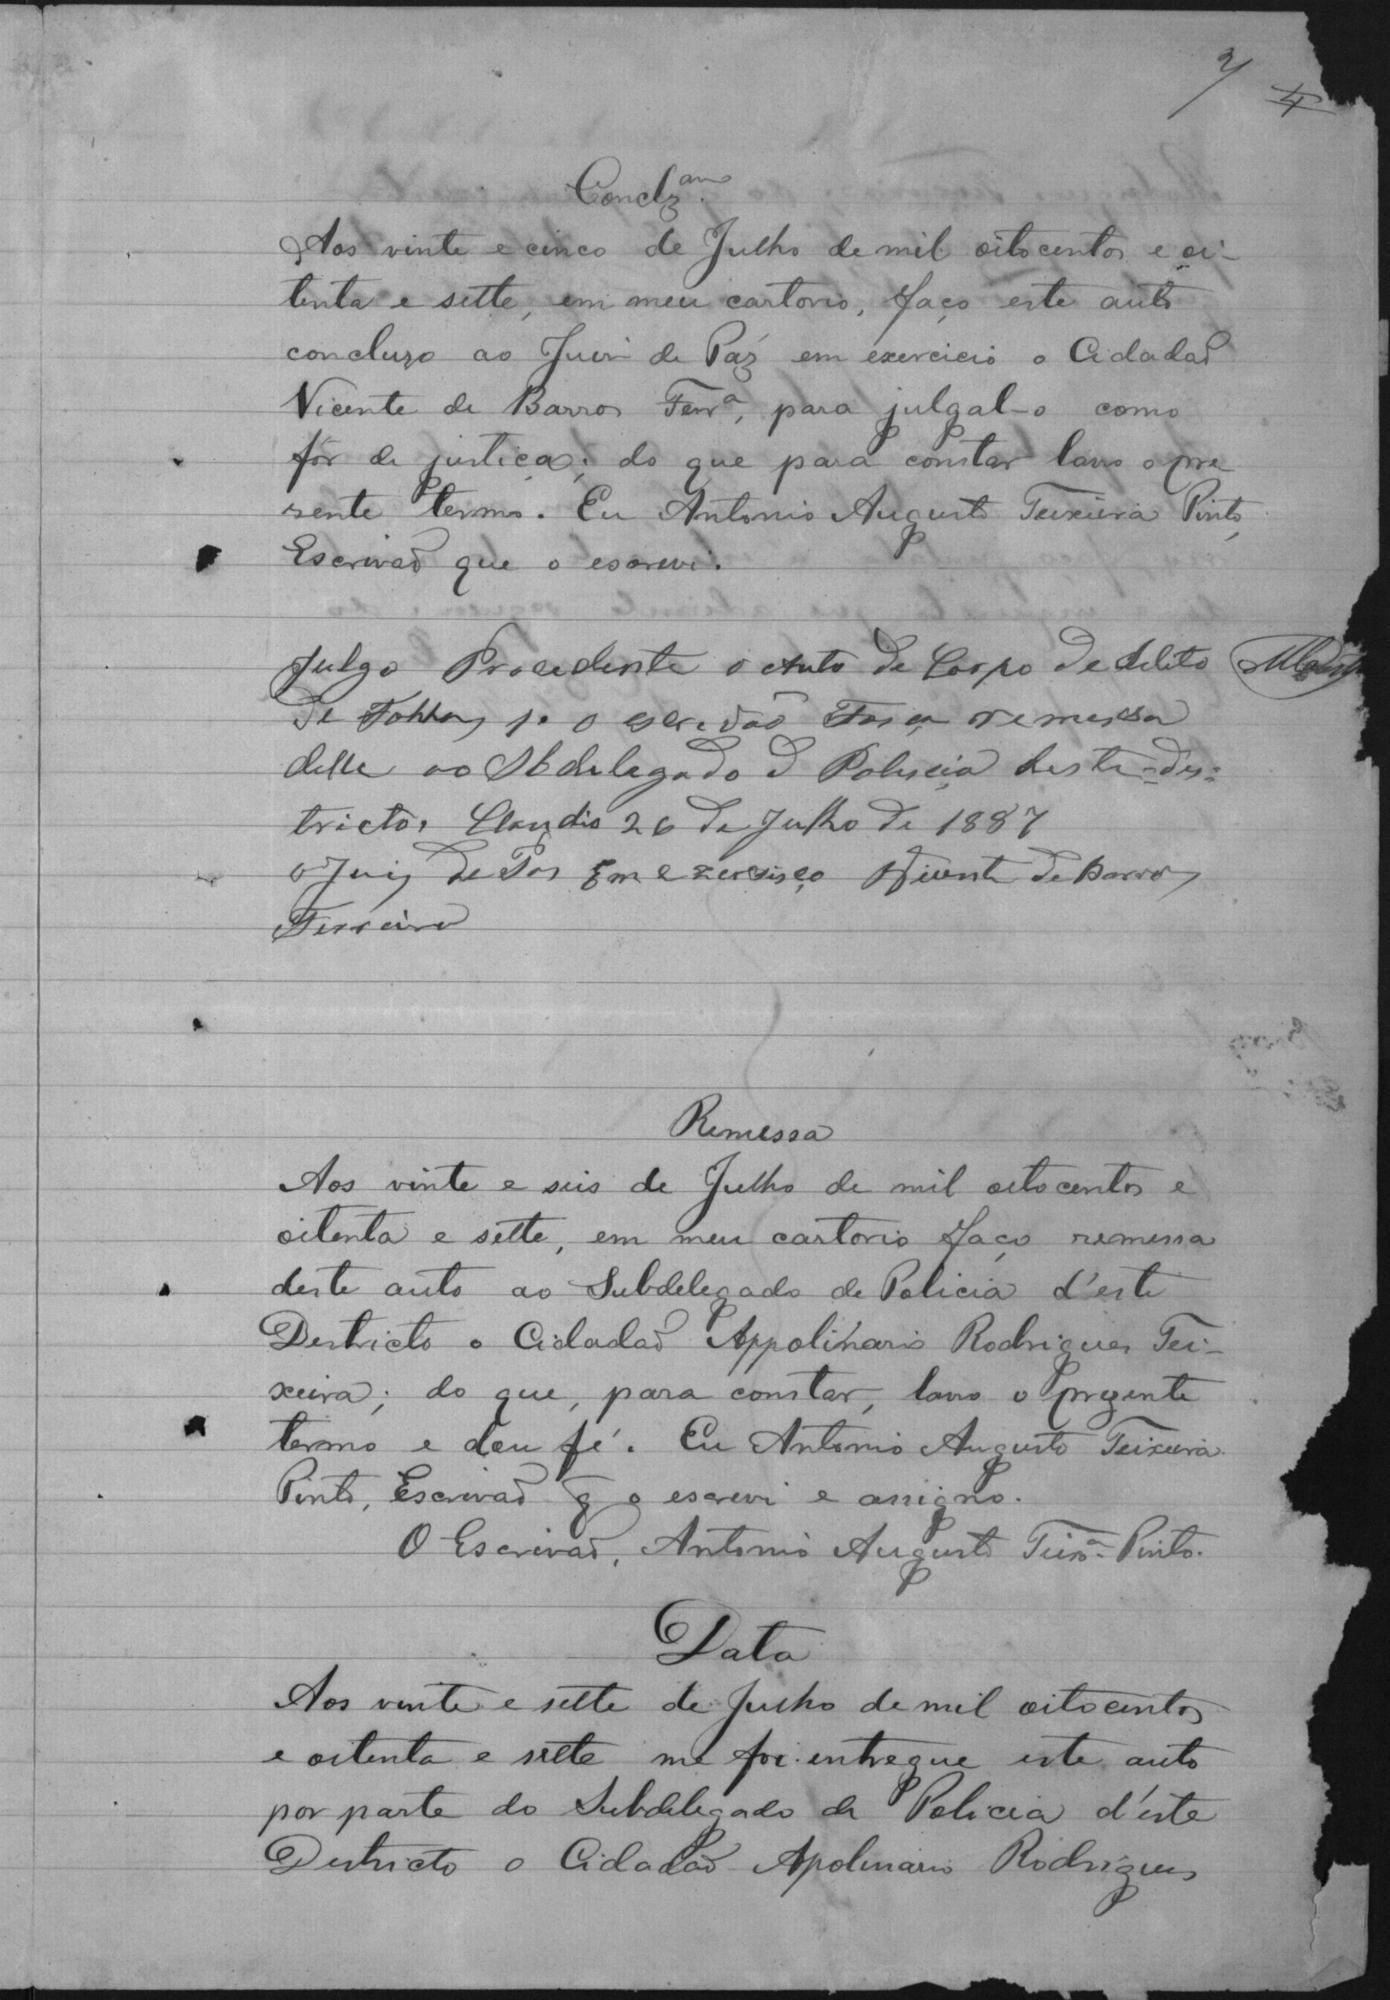 2
Conclzam
Aos vinte e cinco de Julho de mil oitocentos e oi-
tenta e sette, em meu cartorio, faço este auto
concluzo ao Juiz de Páz em exercicio o Cidadaõ
Vicente de Barros Ferrª, para julgal-o como
fôr de justiça; do que para constar lavro o pre-
zente termo. Eu Antonio Augusto Teixeira Pinto,
Escrivaõ que o escrevi.
Julgo Procedente o Auto de Corpo de delito
de o escrivão Faça remessa
delle ao Sbdelegado d Policia deste des=
tricto, Claudio 26 de Julho de 1887
o Juiz de Pas Em ezersisço Vicente de Barros
Ferreira
Remessa
Aos vinte e seis de Julho de mil oitocentos e
oitenta e sette, em meu cartorio faço remessa
deste auto ao Subdelegado de Policia d'este
Destricto o Cidadaõ Appolinario Rodrigues Tei-
xeira; do que, para constar, lavro o prezente
termo e dou fé. Eu Antonio Augusto Teixeira
Pinto, Escrivaõ q̃ o escrevi e assigno.
O Escrivaõ, Antonio Augusto Teixª Pinto.
Data
Aos vinte e sette de Julho de mil oitocentos
e oitenta e sette me foi entregue este auto
por parte do Subdelegado de Policia d'este
Destricto o Cidadaõ Apolinario Rodrigues